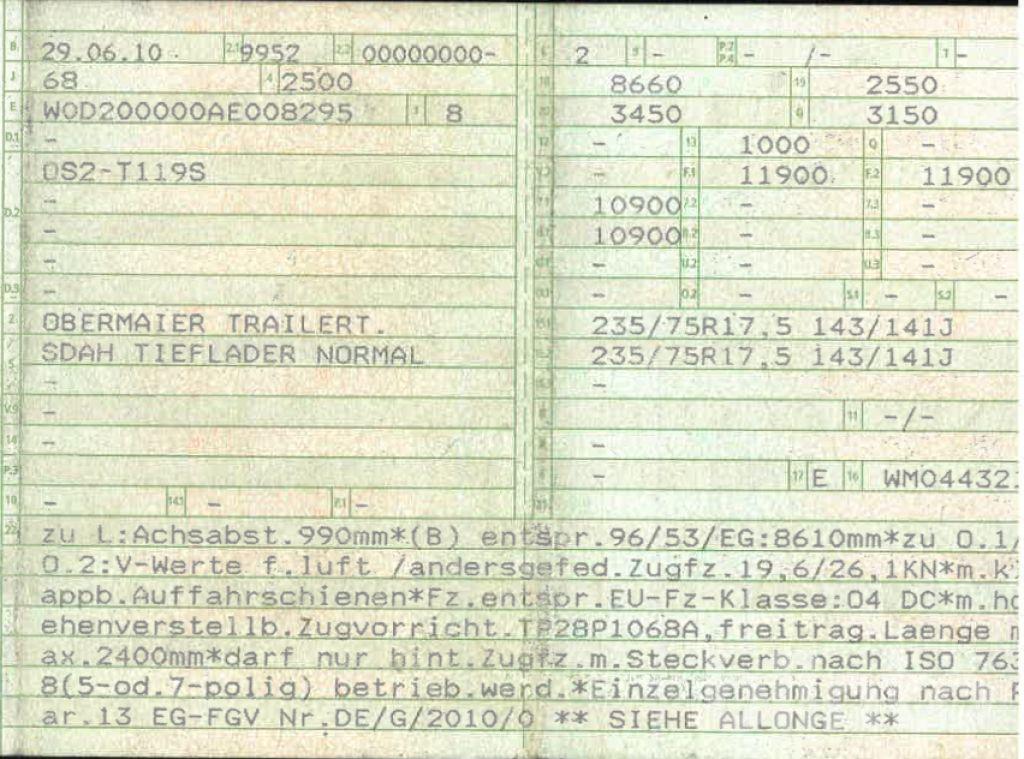 B 29.06.10 2.1 9952 2.2 00000000- L 2 9 - P.2 P.4 - /- T -
J 68 4 2500 18 8660 19 2550
E W0D200000AE008295 3 8 20 3450 G 3150
D.1 - 12 - 13 1000 Q -
OS2-T119S V.7 - F.1 11900 F.2 11900
D.2 - 7.1 10900 7.2 - 7.3 -
- 8.1 10900 8.2 - 8.3 -
- U.1 - U.2 - U.3 -
D.3 - O.1 - O.2 - S.1 - S.2 -
2 OBERMAIER TRAILERT. 15.1 235/75R17,5 143/141J
5 SDAH TIEFLADER NORMAL 15.2 235/75R17,5 143/141J
- 15.3 -
V.9 - R 11 -/-
14 - K -
P.3 6 - 17 E 16 WM04432
10 - 14.1 - P.1 - 21
22 zu L:Achsabst.990mm*(B) entspr.96/53/EG:8610mm*zu O.1/
O.2:V-Werte f.luft /andersgefed.Zugfz.19,6/26,1KN*m.k
appb.Auffahrschienen*Fz.entspr.EU-Fz-Klasse:O4 DC*m.ho
ehenverstellb.Zugvorricht.TP28P1068A,freitrag.Laenge m
ax.2400mm*darf nur hint.Zugfz.m.Steckverb.nach ISO 763
8(5-od.7-polig) betrieb.werd.*Einzelgenehmigung nach P
ar.13 EG-FGV Nr.DE/G/2010/0 ** SIEHE ALLONGE **